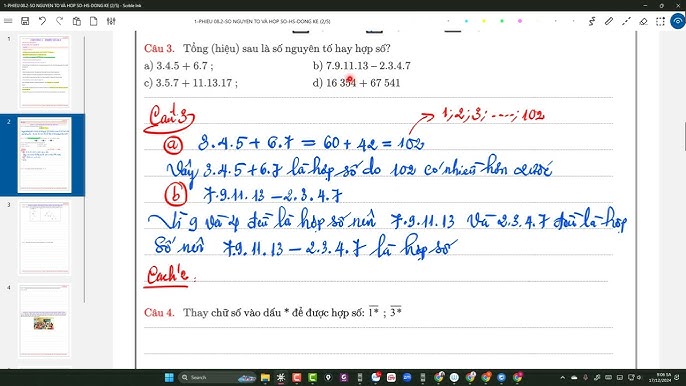 1-PHIEU 08.2-SO NGUYEN TO VÀ HOP SO-HS-DONG KE (2/5) - Scrble Ink
1-PHIEU 08.2-SO NGUYEN TO VÀ HOP SO-HS-DONG KE (2/5)
Câu 3. Tổng (hiệu) sau là số nguyên tố hay hợp số?
a) 3.4.5 + 6.7 ;
b) 7.9.11.13 – 2.3.4.7
c) 3.5.7 + 11.13.17 ;
d) 16 354 + 67 541
Câu 3
1; 2; 3; ....; 102
a 3.4.5 + 6.7 = 60 + 42 = 102
Vậy 3.4.5 + 6.7 là hợp số do 102 có nhiều hơn 2 ước
b 7.9.11.13 – 2.3.4.7
Vì 9 và 4 đều là hợp số nên 7.9.11.13 và 2.3.4.7 đều là hợp
số nên 7.9.11.13 – 2.3.4.7 là hợp số
Cách 2:
Câu 4. Thay chữ số vào dấu * để được hợp số: 1* ; 3*
2
3
4
Search
9:06 SA
17/12/2024